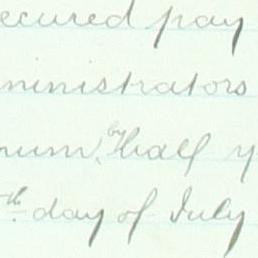 ecured pay
ministrators
num, by half y
th day of July